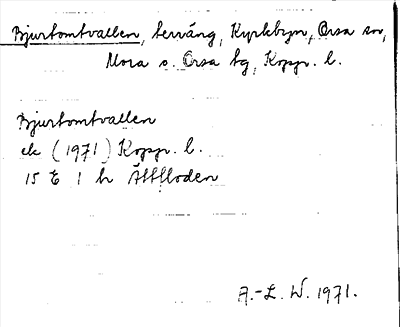 Bjurtomtvallen, terräng, Kyrkbyn, Orsa sn,
Mora o. Orsa tg, Kopp. l.
Bjurtomtvallen
ek (1971) Kopp. l.
15 E 1 h Ättfloden
A.-L. W. 1971.